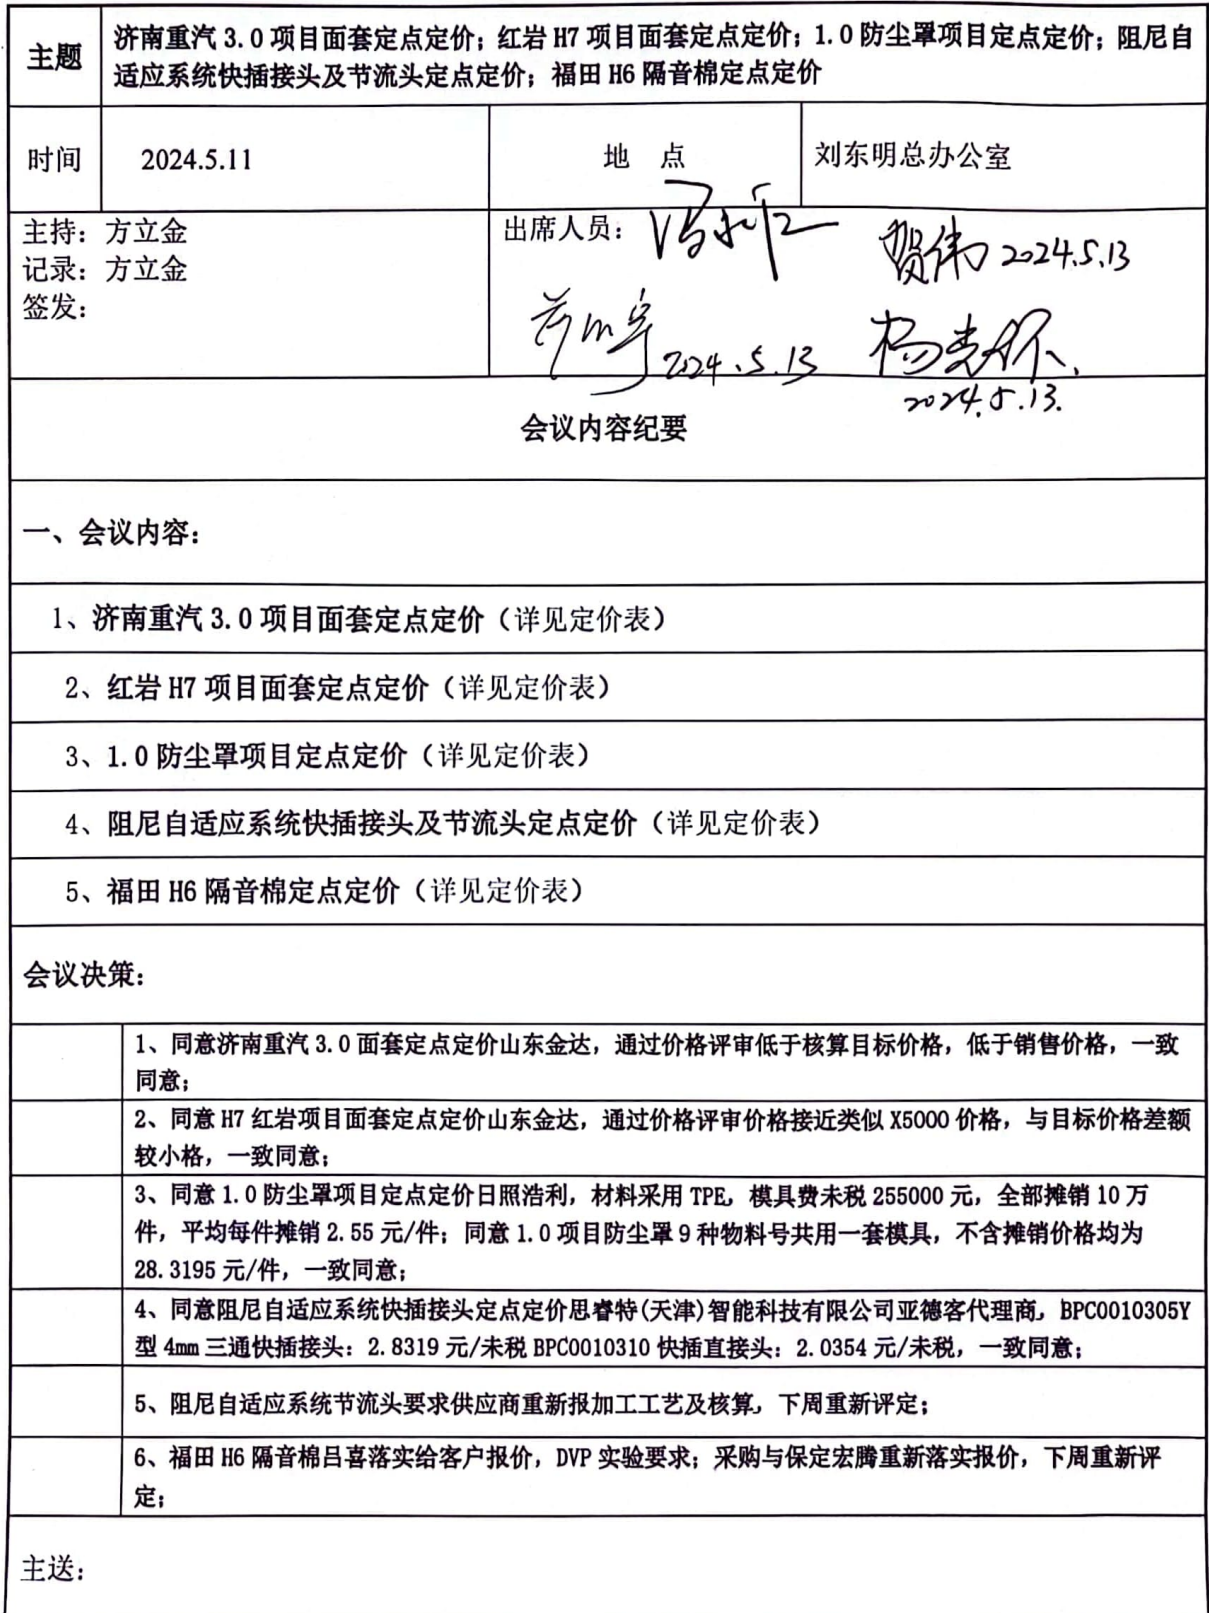 主题
济南重汽 3.0 项目面套定点定价；红岩 H7 项目面套定点定价；1.0 防尘罩项目定点定价；阻尼自
适应系统快插接头及节流头定点定价；福田 H6 隔音棉定点定价
时间 2024.5.11 地 点 刘东明总办公室
主持：方立金
记录：方立金
签发：
出席人员：
贺伟 2024.5.13
2024.5.13
2024.5.13.
会议内容纪要
一、会议内容：
1、济南重汽 3.0 项目面套定点定价（详见定价表）
2、红岩 H7 项目面套定点定价（详见定价表）
3、1.0 防尘罩项目定点定价（详见定价表）
4、阻尼自适应系统快插接头及节流头定点定价（详见定价表）
5、福田 H6 隔音棉定点定价（详见定价表）
会议决策：
1、同意济南重汽 3.0 面套定点定价山东金达，通过价格评审低于核算目标价格，低于销售价格，一致
同意；
2、同意 H7 红岩项目面套定点定价山东金达，通过价格评审价格接近类似 X5000 价格，与目标价格差额
较小格，一致同意；
3、同意 1.0 防尘罩项目定点定价日照浩利，材料采用 TPE，模具费未税 255000 元，全部摊销 10 万
件，平均每件摊销 2.55 元/件；同意 1.0 项目防尘罩 9 种物料号共用一套模具，不含摊销价格均为
28.3195 元/件，一致同意；
4、同意阻尼自适应系统快插接头定点定价思睿特(天津)智能科技有限公司亚德客代理商，BPC0010305Y
型 4mm 三通快插接头：2.8319 元/未税 BPC0010310 快插直接头：2.0354 元/未税，一致同意；
5、阻尼自适应系统节流头要求供应商重新报加工工艺及核算，下周重新评定；
6、福田 H6 隔音棉吕喜落实给客户报价，DVP 实验要求；采购与保定宏腾重新落实报价，下周重新评
定；
主送：